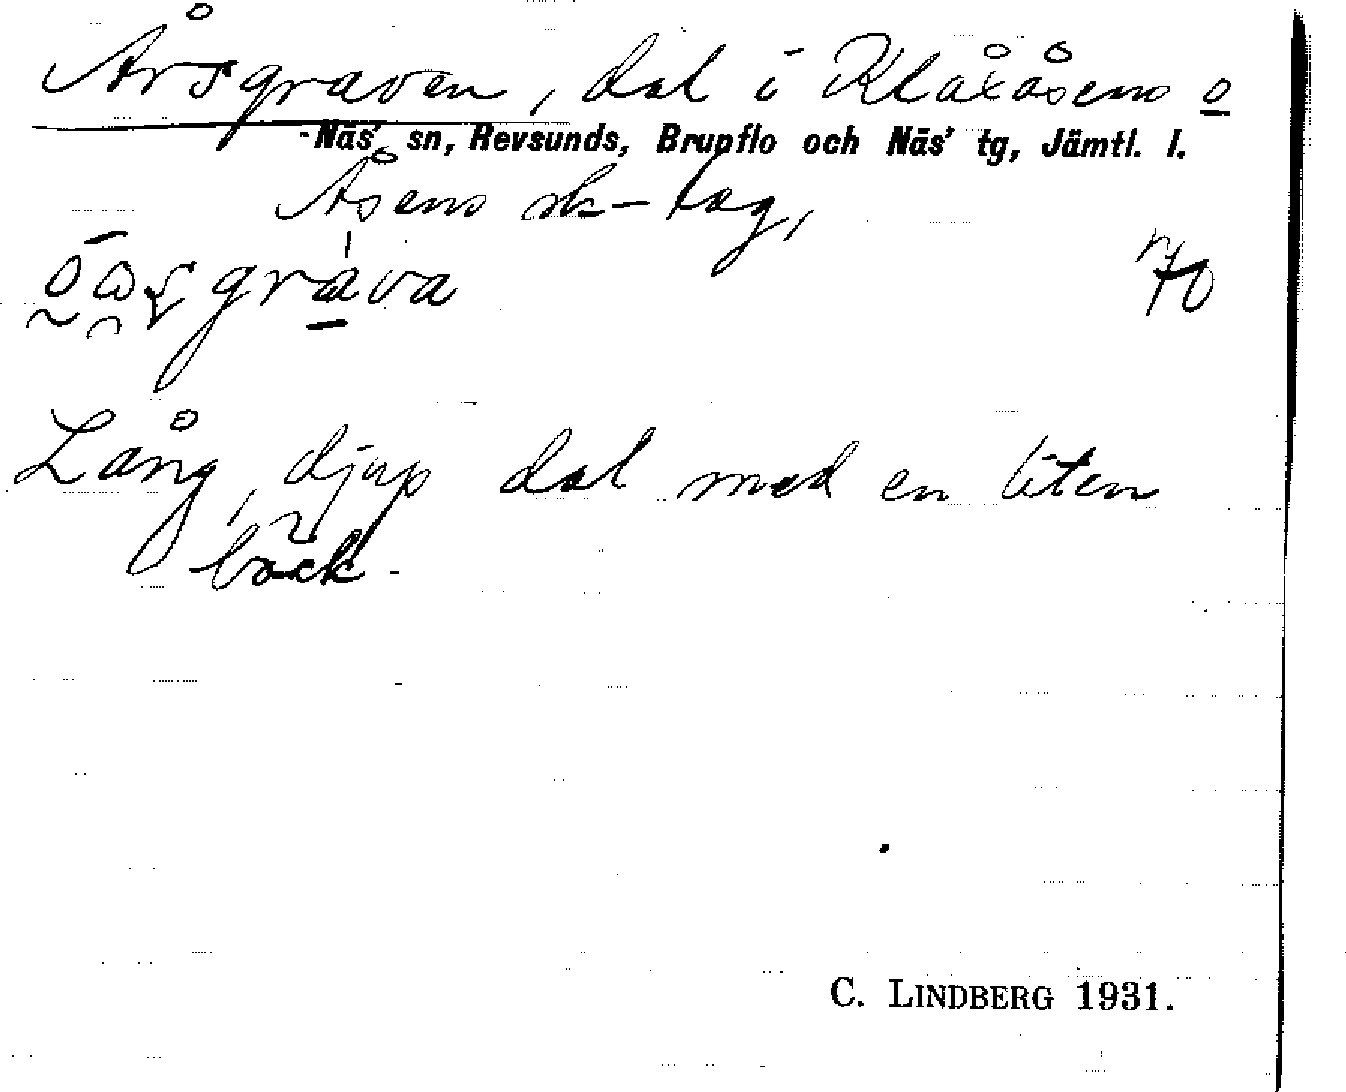 Årsgraven, dal i Klåxåsens o
Näs' sn, Revsunds, Brunflo och Näs' tg, Jämtl. l.
Åsens sk-lag,
70
Lång, djup dal med en liten
bäck.
C. LINDBERG 1931.